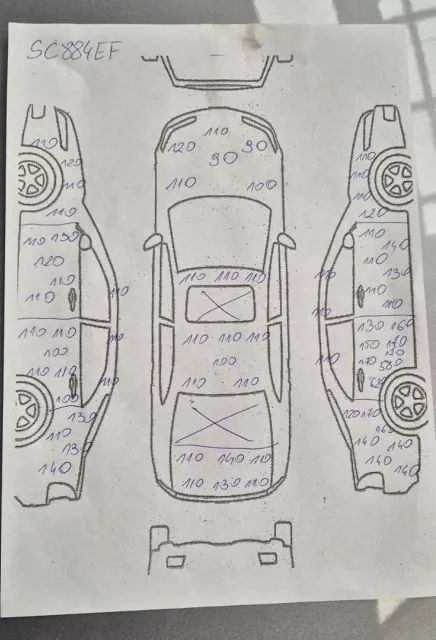 SC884EF
110
120 90
90
110 100
110
120
110
110
110 130
120
110
110
110
110 110
100
110 110
100
130
110
130
140
110
110
110
110 110 110
110 110 110
100
110 110
110 140 110
110 130 110
110
110
110
120
110
140
110
130
110
110
110
110
110
130 160
150 170
170
170 580
120 170
140 140
140 140